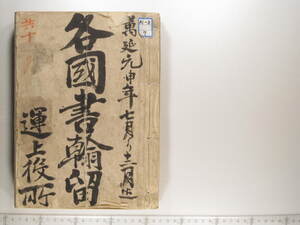 萬延元申年七月ゟ十二月迄
各國書翰留
運上役所